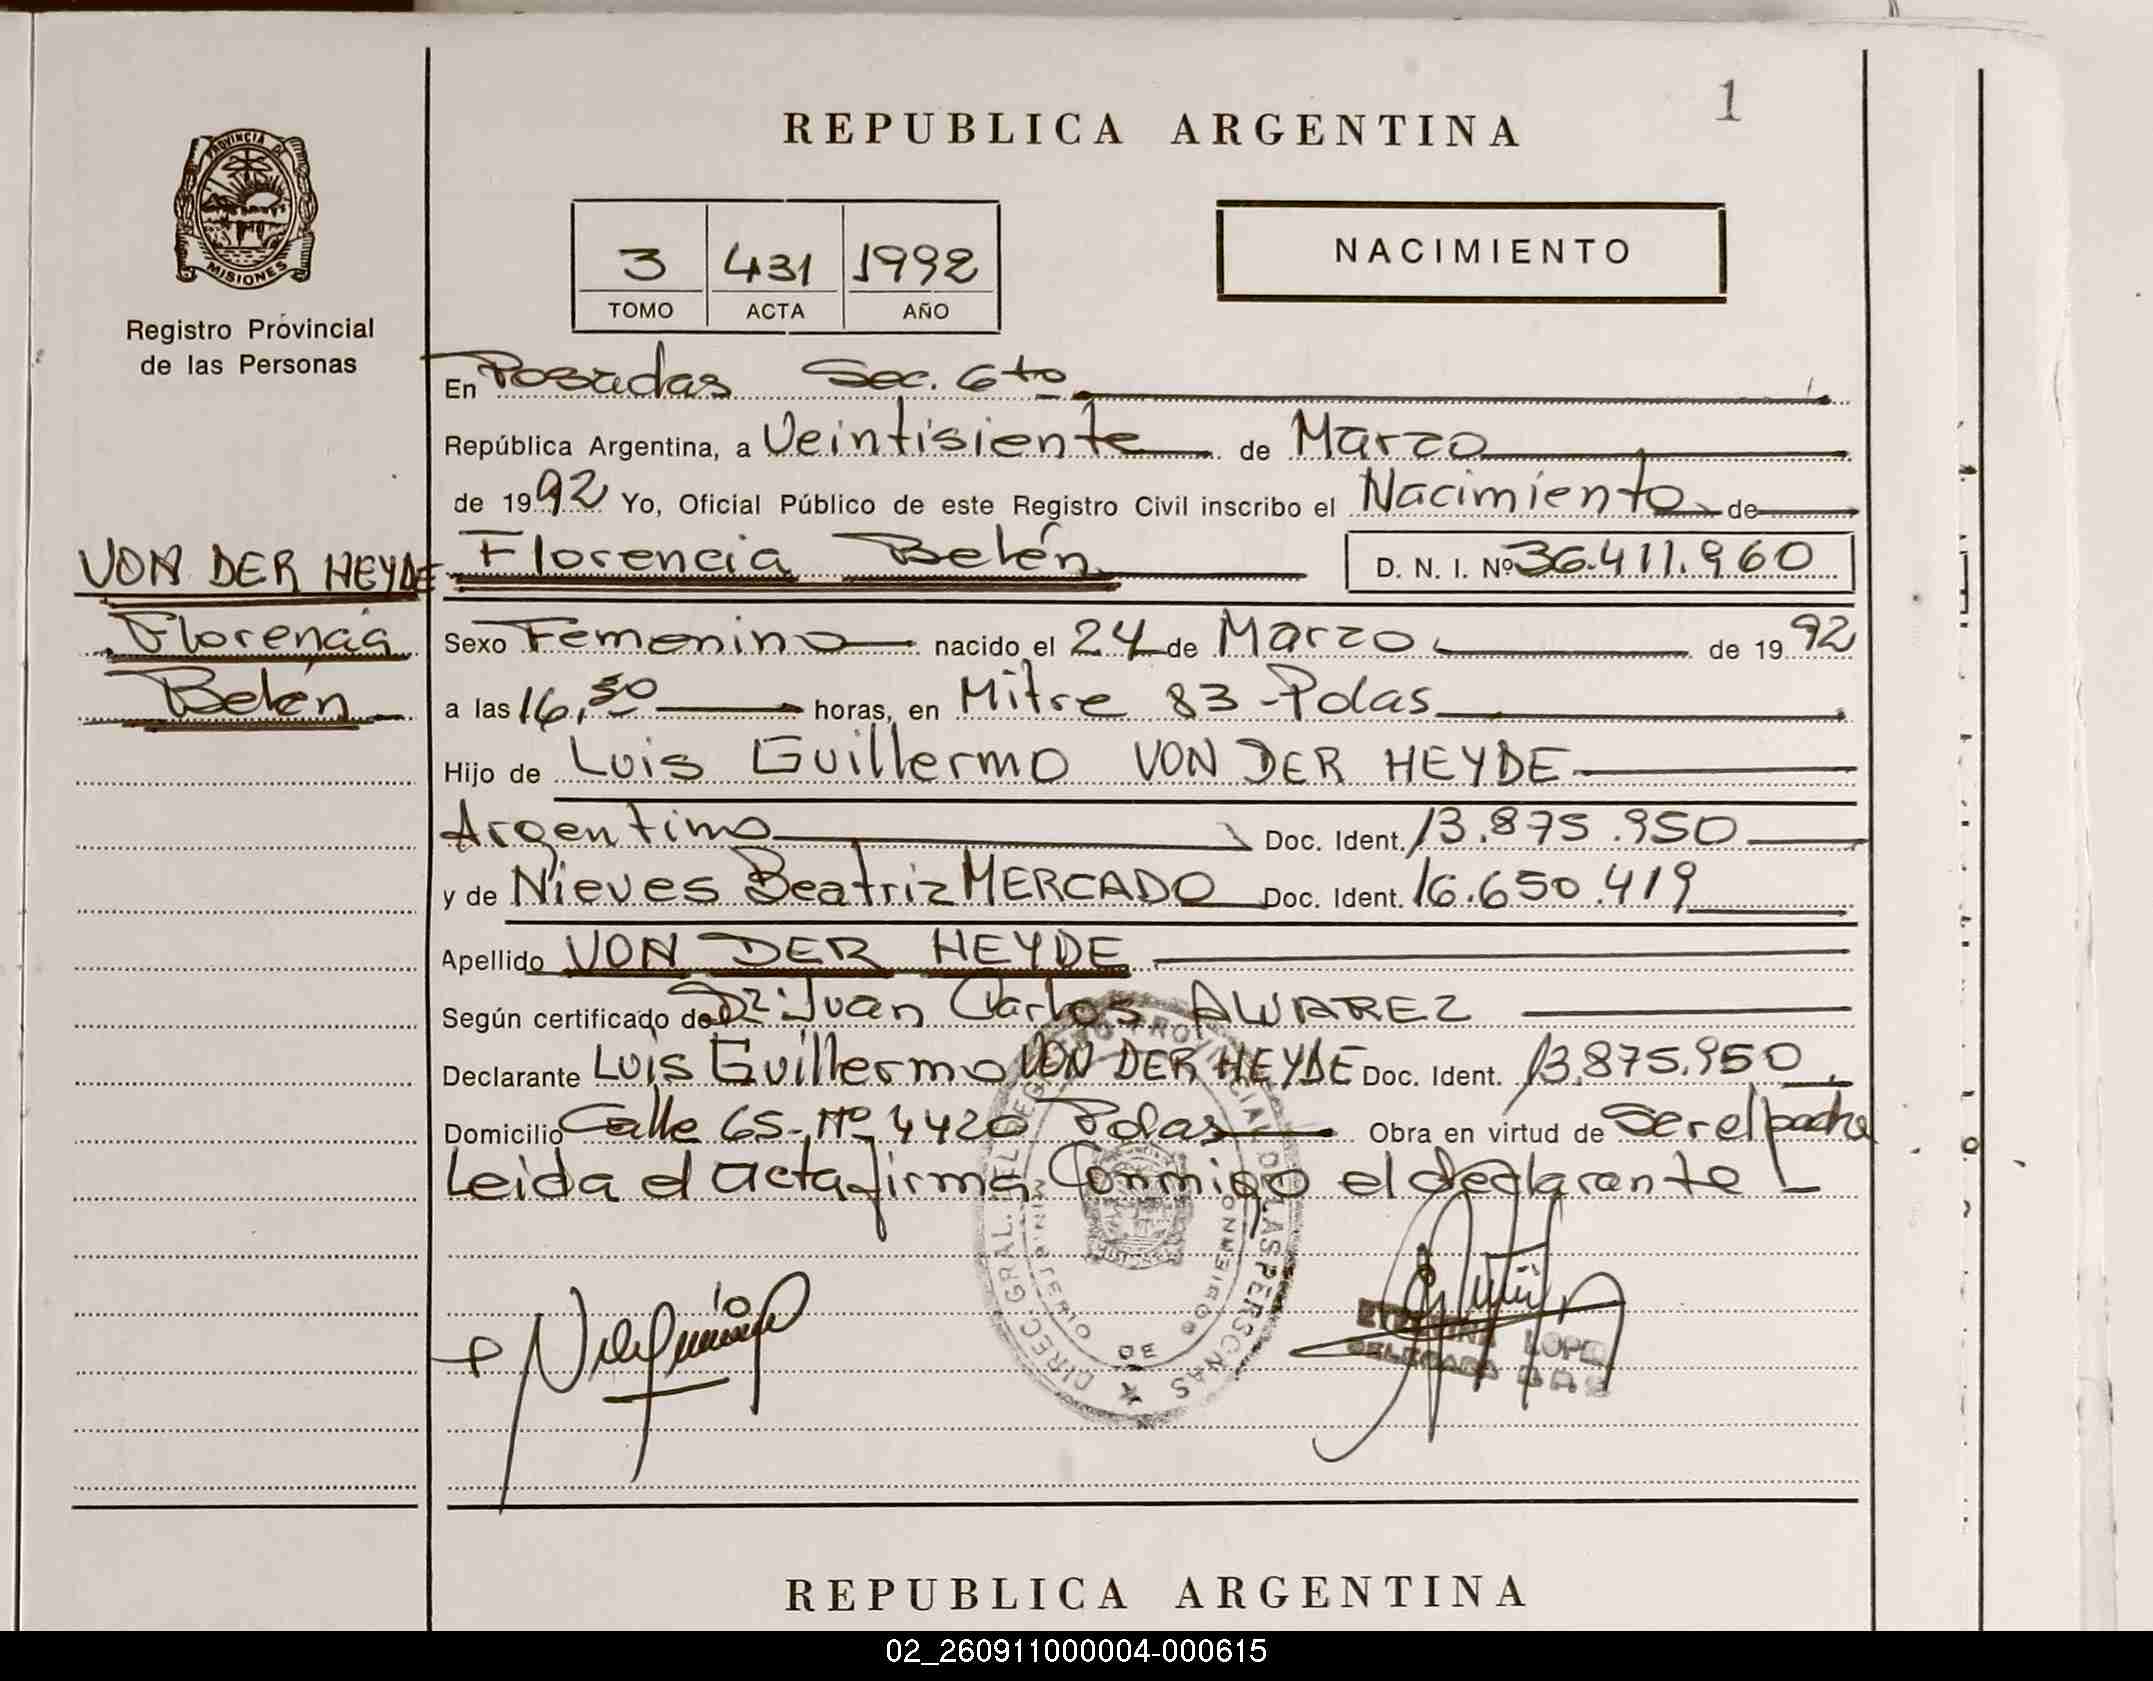 1
REPUBLICA ARGENTINA
PROVINCIA DE
MISIONES
Registro Provincial
de las Personas
3 431 1992
TOMO ACTA AÑO
NACIMIENTO
En Posadas Sec. 6to
República Argentina, a Veintisiente de Marzo
de 1992 Yo, Oficial Público de este Registro Civil inscribo el Nacimiento de
VON DER HEYDE
Florencia
Belén
Florencia Belén D. N. I. Nº 36.411.960
Sexo Femenino nacido el 24 de Marzo de 1992
a las 16,50 horas, en Mitre 83 - Pdas
Hijo de Luis Guillermo VON DER HEYDE
Argentino Doc. Ident. 13.875.950
y de Nieves Beatriz MERCADO Doc. Ident. 16.650.419
Apellido VON DER HEYDE
Según certificado de Dr. Juan Carlos ALVAREZ
Declarante Luis Guillermo VON DER HEYDE Doc. Ident. 13.875.950
Domicilio Calle 65 - Nº 4420 Pdas Obra en virtud de ser el padre
Leida el acta firma Conmigo el declarante
DIREC. GRAL. DEL REGISTRO PROVINCIAL DE LAS PERSONAS
MINISTERIO DE GOBIERNO
LOPE
DELEGADA
REPUBLICA ARGENTINA
02_260911000004-000615